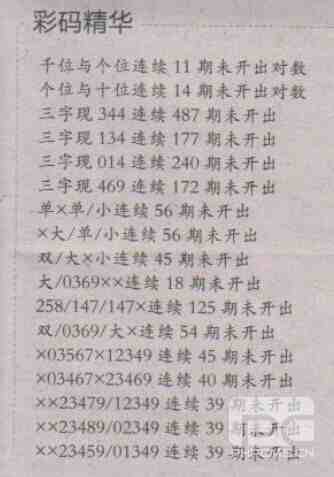 彩码精华
千位与个位连续 11 期未开出对数
个位与十位连续 14 期未开出对数
三字现 344 连续 487 期未开出
三字现 134 连续 177 期未开出
三字现 014 连续 240 期未开出
三字现 469 连续 172 期未开出
单×单/小连续 56 期未开出
×大/单/小连续 56 期未开出
双/大×小连续 45 期未开出
大/0369××连续 18 期未开出
258/147/147×连续 125 期未开出
双/0369/大×连续 54 期未开出
×03567×12349 连续 45 期未开出
×03467×23469 连续 40 期未开出
××23479/12349 连续 39 期未开出
××23489/02349 连续 39 期未开出
××23459/01349 连续 39 期未开出